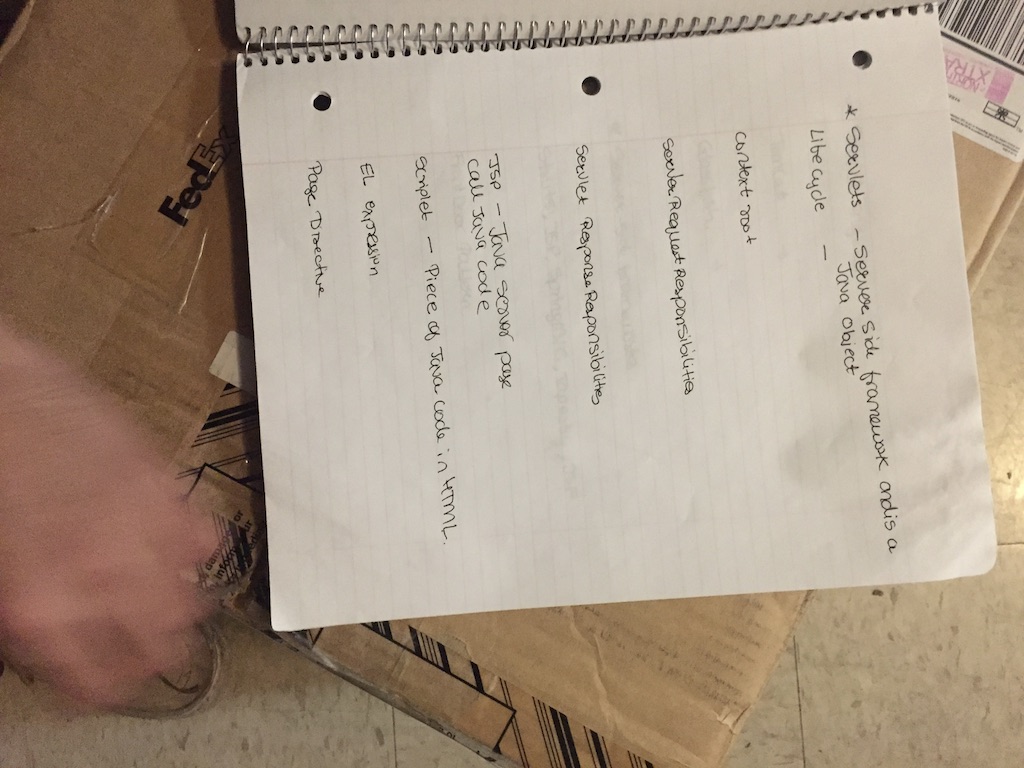 * Servlets - Servere Side framework and is a
Java Object
Life cycle -
Context root
Servlet Request Responsibilities
Servlet Response Responsibilities
JSP - Java Server page
Call Java code
Scriplet - Piece of Java code in HTML.
EL expression
Page Directive
FedEx
XTRA